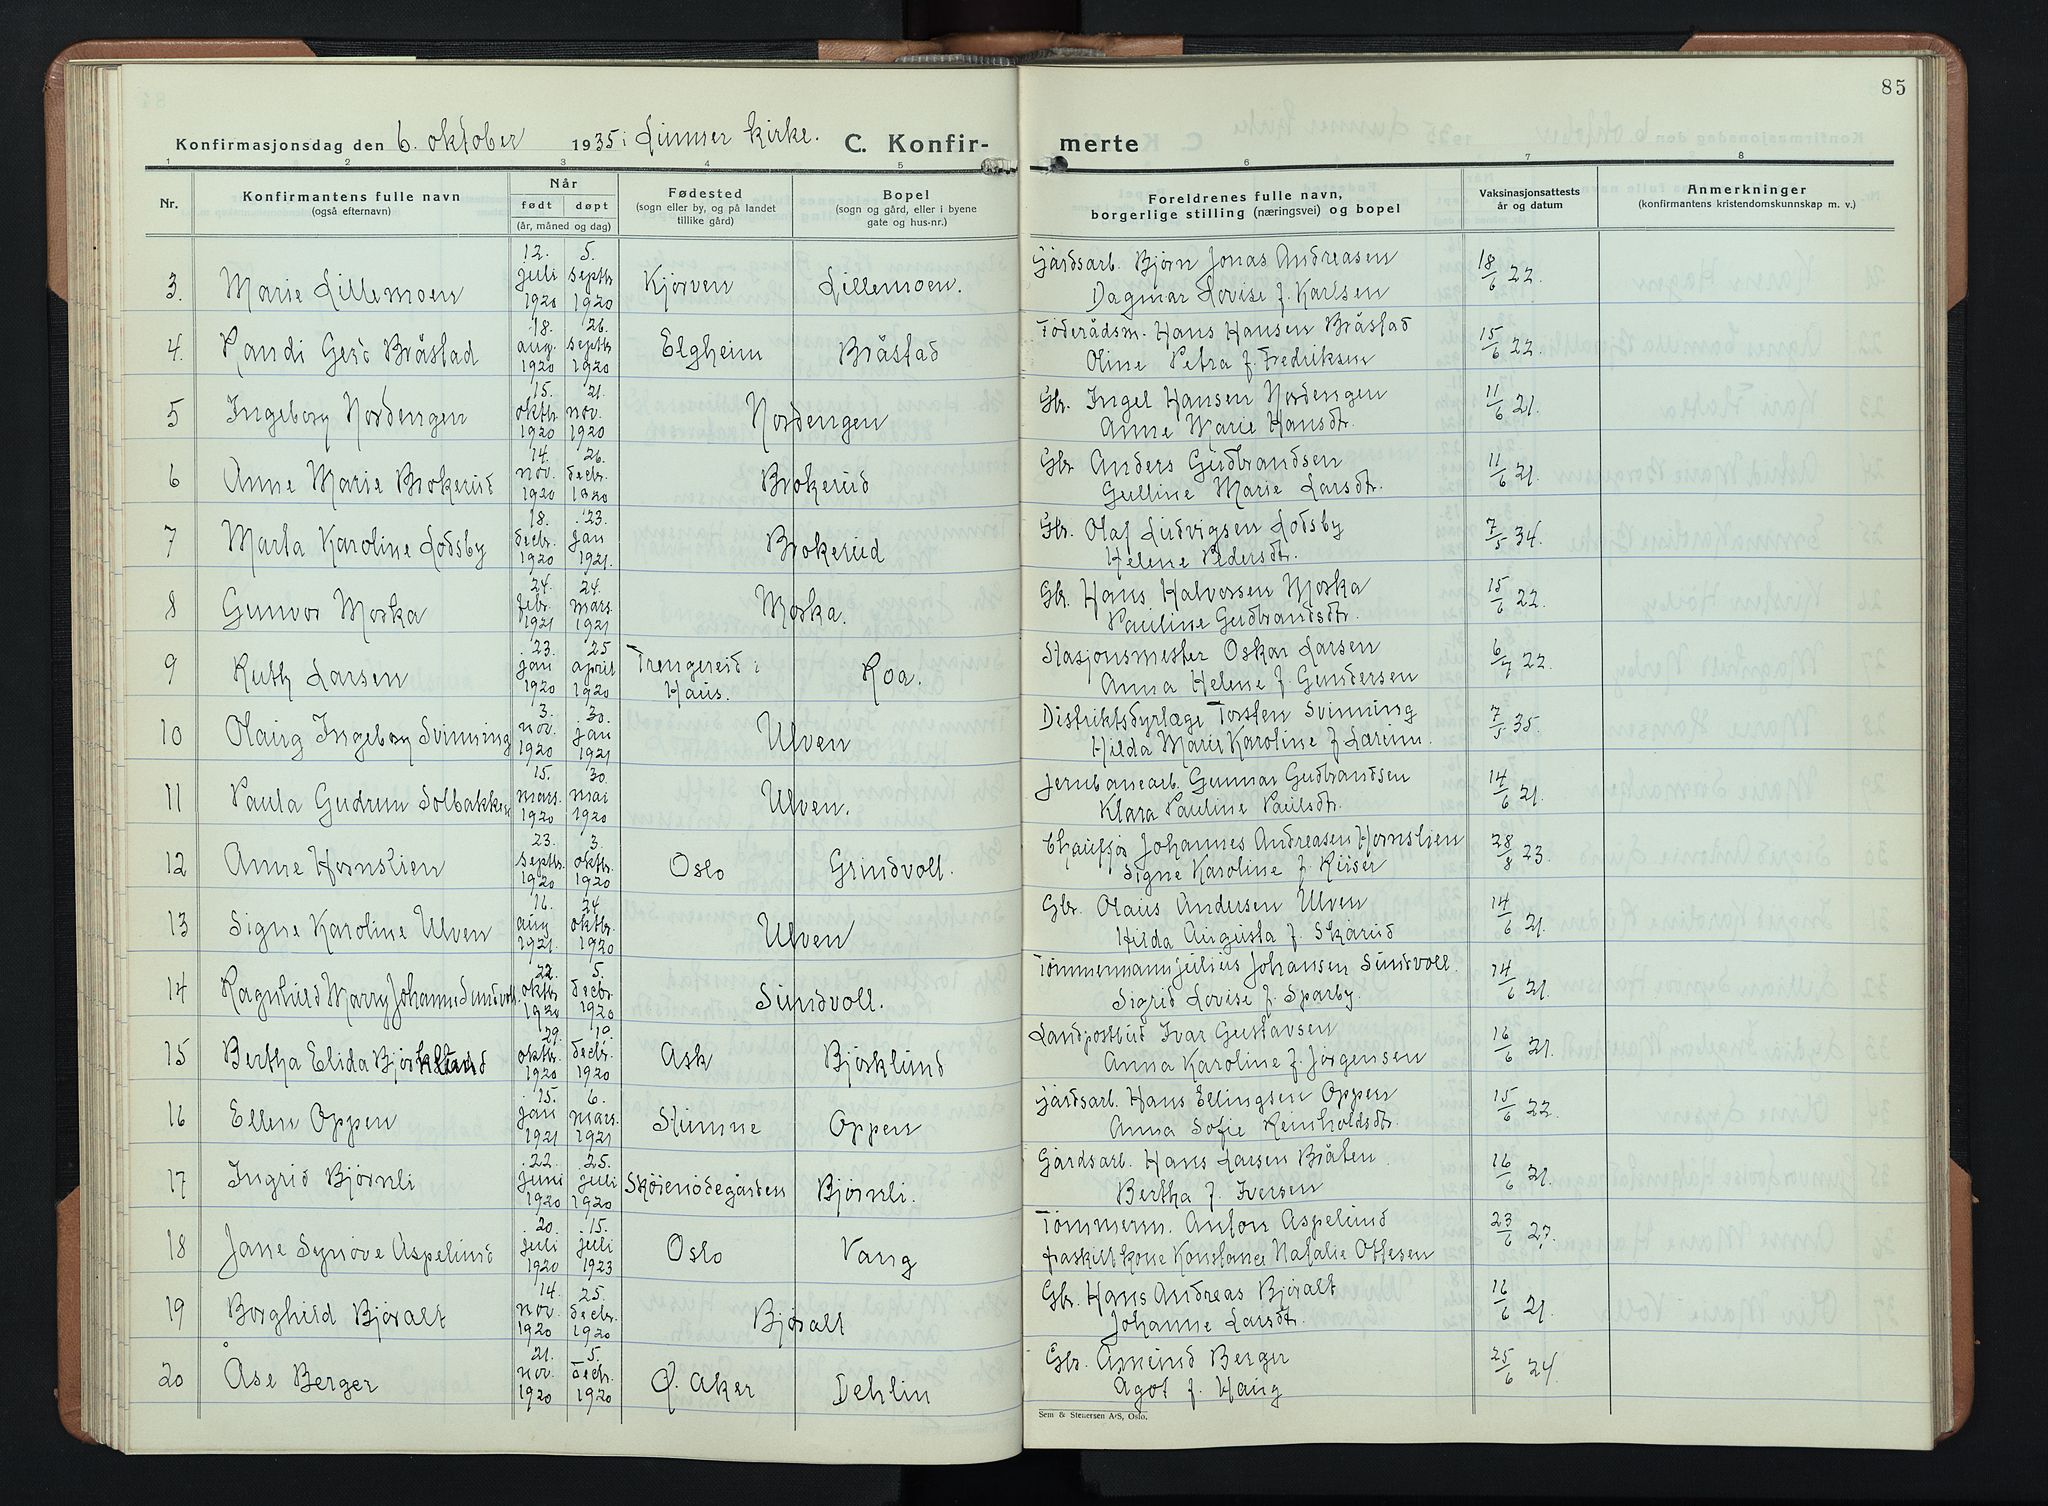 85
Konfirmasjonsdag den 6. oktober 1935 i Lunner kirke. C. Konfir- merte
1 2 3 4 5 6 7 8
Nr. Konfirmantens fulle navn (også efternavn) Når født døpt (år, måned og dag) Fødested (sogn eller by, og på landet tillike gård) Bopel (sogn og gård, eller i byene gate og hus-nr.) Foreldrenes fulle navn, borgerlige stilling (næringsvei) og bopel Vaksinasjonsattests år og datum Anmerkninger (konfirmantens kristendomskunnskap m. v.)
3. Marie Lillemoen 12. juli 1920 5. septbr. 1920 Kjørven Lillemoen. Gårdsarb. Bjørn Jonas Andreasen 18/6 22.
Dagmar Lovise f. Karlsen
4. Randi Gerd Bråstad 18. aug. 1920 26. septbr 1920 Elgheim Bråstad Föderådsm. Hans Hansen Bråstad 15/6 22.
Oline Petra f. Fredriksen
5 Ingeborg Nordengen 15. oktbr. 1920 21. nov. 1920 Nordengen Gbr. Ingel Hansen Nordengen 11/6 21.
Anne Marie Hansdtr.
6 Anne Marie Brokerud 14. nov. 1920 26. decbr. 1920 Brokerud Gbr. Anders Gudbrandsen 11/6 21.
Gulline Marie Larsdtr.
7 Marta Karoline Lodsby 18. decbr. 1920 23. jan 1921. Brokerud Gbr. Olaf Ludvigsen Lodsby 7/5 34.
Helene Pedersdtr.
8 Gunvor Morka 24. febr. 1921 24. mars. 1921 Morka. Gbr. Hans Halvorsen Morka 15/6 22.
Pauline Gudbrandsdtr.
9 Ruth Larsen 23. jan 1920 25 april 1920 Trengereid i Haus. Roa. Stasjonsmester Oskar Larsen 6/7 22.
Anna Helene f. Gundersen
10 Olaug Ingeborg Svinning 3. nov. 1920 30. jan 1921 Ulven Distriktsdyrlæge Torsten Svinning 7/5 35.
Hilda Marie Karoline f.
11 Paula Gudrun Solbakken 15. mars. 1920 30. mai 1920 Ulven. Jernbanearb. Gunnar Gudbrandsen 14/6 21.
Klara Pauline Paulsdtr.
12 Anne Hornslien 23. septbr. 1920 3. oktbr. 1920 Oslo Grindvoll. Chauffør Johannes Andreasen Hornslien 28/8 23.
Signe Karoline f.
13 Signe Karoline Ulven 16. aug 1921. 24. oktbr. 1920 Ulven Gbr. Olaus Andersen Ulven 14/6 21.
Hilda Augusta f. Skårud
14 Ragnhild Marry Johanne Sundvoll. 22. oktbr 1920 5. decbr. 1920 Sundvoll. Tømmermann Julius Johansen Sundvoll. 14/6 21.
Sigrid Lovise f. Sparby.
15 Bertha Elida Bjørklund 29. oktbr. 1920 19. decbr. 1920 Ask Bjørklund Landpostbud Ivar Gustavsen 16/6 21.
Anna Karoline f. Jørgensen
16 Ellen Oppen 15. jan 1921 6. mars. 1921 Stumne Oppen Gårdsarb. Hans Ellingsen Oppen 15/6 22.
Anna Sofie Reinholdsdtr.
17 Ingrid Bjørnli 22. juni 1920 25. juli 1920 Skøienødegården Bjørnli. Gårdsarb. Hans Larsen Bråten 16/6 21.
Bertha f. Iversen
18 Jane Synøve Aspelund 20. juli 1920 15. juli 1923 Oslo Vang Tømmerm. Anton Aspelund 23/6 27.
fraskilt kone Konstance Natalie Ottesen
19 Borghild Bjøralt 14. nov. 1920 25. decbr. 1920 Bjøralt Gbr. Hans Andreas Bjøralt 16/6 21.
Johanne Larsdtr.
20 Åse Berger 21. nov. 1920 5. decbr. 1920 Ø. Aker Dehlin Gbr. Åmund Berger 25/6 24.
Ågot f. Haug
Sem & Stenersen A/S, Oslo.